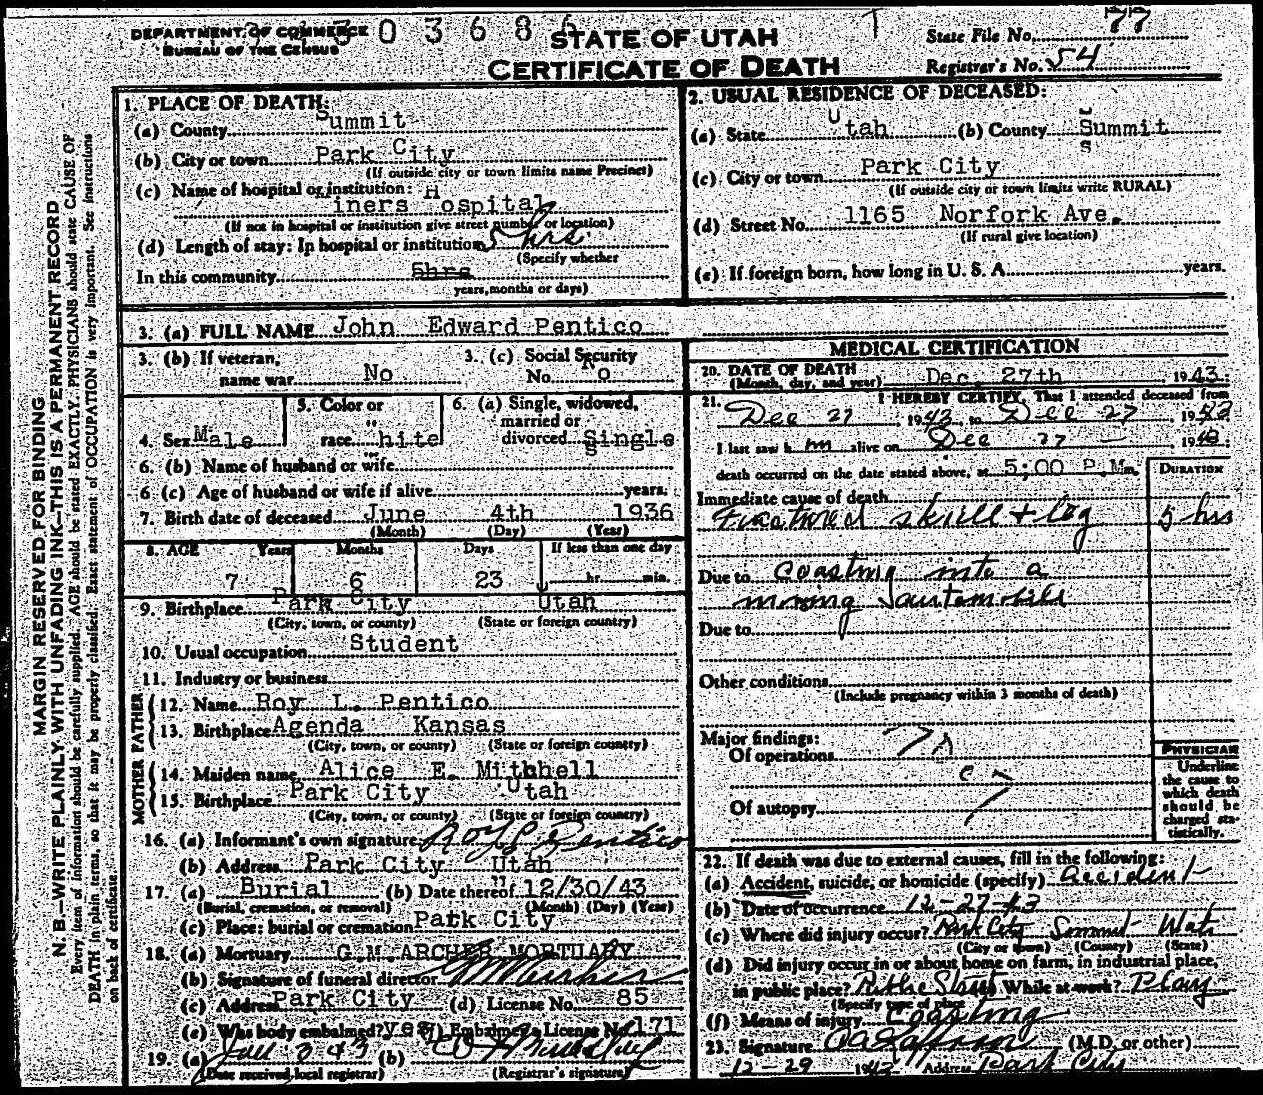 DEPARTMENT OF COMMERCE
BUREAU OF THE CENSUS
303686
STATE OF UTAH
CERTIFICATE OF DEATH
State File No. 77
Registrar's No. 54
MARGIN RESERVED FOR BINDING
N. B.—WRITE PLAINLY WITH UNFADING INK—THIS IS A PERMANENT RECORD
Every item of information should be carefully supplied. AGE should be stated EXACTLY. PHYSICIANS should state CAUSE OF
DEATH in plain terms, so that it may be properly classified. Exact statement of OCCUPATION is very important. See instructions
on back of certificate.
1. PLACE OF DEATH:
(a) County Summit
(b) City or town Park City
(If outside city or town limits name Precinct)
(c) Name of hospital or institution:
iners Hospital
(If not in hospital or institution give street number or location)
(d) Length of stay: In hospital or institution 5 hrs.
(Specify whether
In this community 5hrs
years, months or days)
2. USUAL RESIDENCE OF DECEASED:
(a) State Utah (b) County Summit
(c) City or town Park City
(If outside city or town limits write RURAL)
(d) Street No. 1165 Norfork Ave.
(If rural give location)
(e) If foreign born, how long in U. S. A. years.
3. (a) FULL NAME John Edward Pentico
3. (b) If veteran, name war No
3. (c) Social Security No. No
4. Sex Male
5. Color or race hite
6. (a) Single, widowed, married or divorced Single
6. (b) Name of husband or wife
6 (c) Age of husband or wife if alive years.
7. Birth date of deceased June 4th 1936
(Month) (Day) (Year)
8. AGE Years Months Days If less than one day
7 6 23 hr. min.
9. Birthplace Park City Utah
(City, town, or county) (State or foreign country)
10. Usual occupation Student
11. Industry or business
FATHER
12. Name Roy L. Pentico
13. Birthplace Agenda Kansas
(City, town, or county) (State or foreign country)
MOTHER
14. Maiden name Alice E. Mitchell
15. Birthplace Park City Utah
(City, town, or county) (State or foreign country)
16. (a) Informant's own signature Roy L. Pentico
(b) Address Park City Utah
17. (a) Burial (b) Date thereof 12/30/43
(Burial, cremation, or removal) (Month) (Day) (Year)
(c) Place: burial or cremation Park City
18. (a) Mortuary G.M.ARCHER MORTUARY
(b) Signature of funeral director GM Archer
(c) Address Park City (d) License No. 85
(e) Was body embalmed? yes (f) Embalmer's License No. 171
19. (a) (b)
(Date received local registrar) (Registrar's signature)
MEDICAL CERTIFICATION
20. DATE OF DEATH
(Month, day, and year) Dec. 27th, 1943.
21. I HEREBY CERTIFY, That I attended deceased from
Dec 27, 1943, to Dec 27, 1943
I last saw him alive on Dec 27 — 1943.
death occurred on the date stated above, at 5;00 P.M m.
DURATION
Immediate cause of death
Fractured skull + leg 5 hrs
Due to coasting into a
moving automobile
Due to
Other conditions
(Include pregnancy within 3 months of death)
Major findings:
Of operations
Of autopsy
PHYSICIAN
Underline
the cause to
which death
should be
charged sta-
tistically.
22. If death was due to external causes, fill in the following:
(a) Accident, suicide, or homicide (specify) accident
(b) Date of occurrence 12-27-43
(c) Where did injury occur? Park City Summit Utah
(City or town) (County) (State)
(d) Did injury occur in or about home on farm, in industrial place,
in public place? Public Street While at work? Play
(Specify type of place
(f) Means of injury Coasting
23. Signature (M.D. or other)
12-29 1943 Address Park City